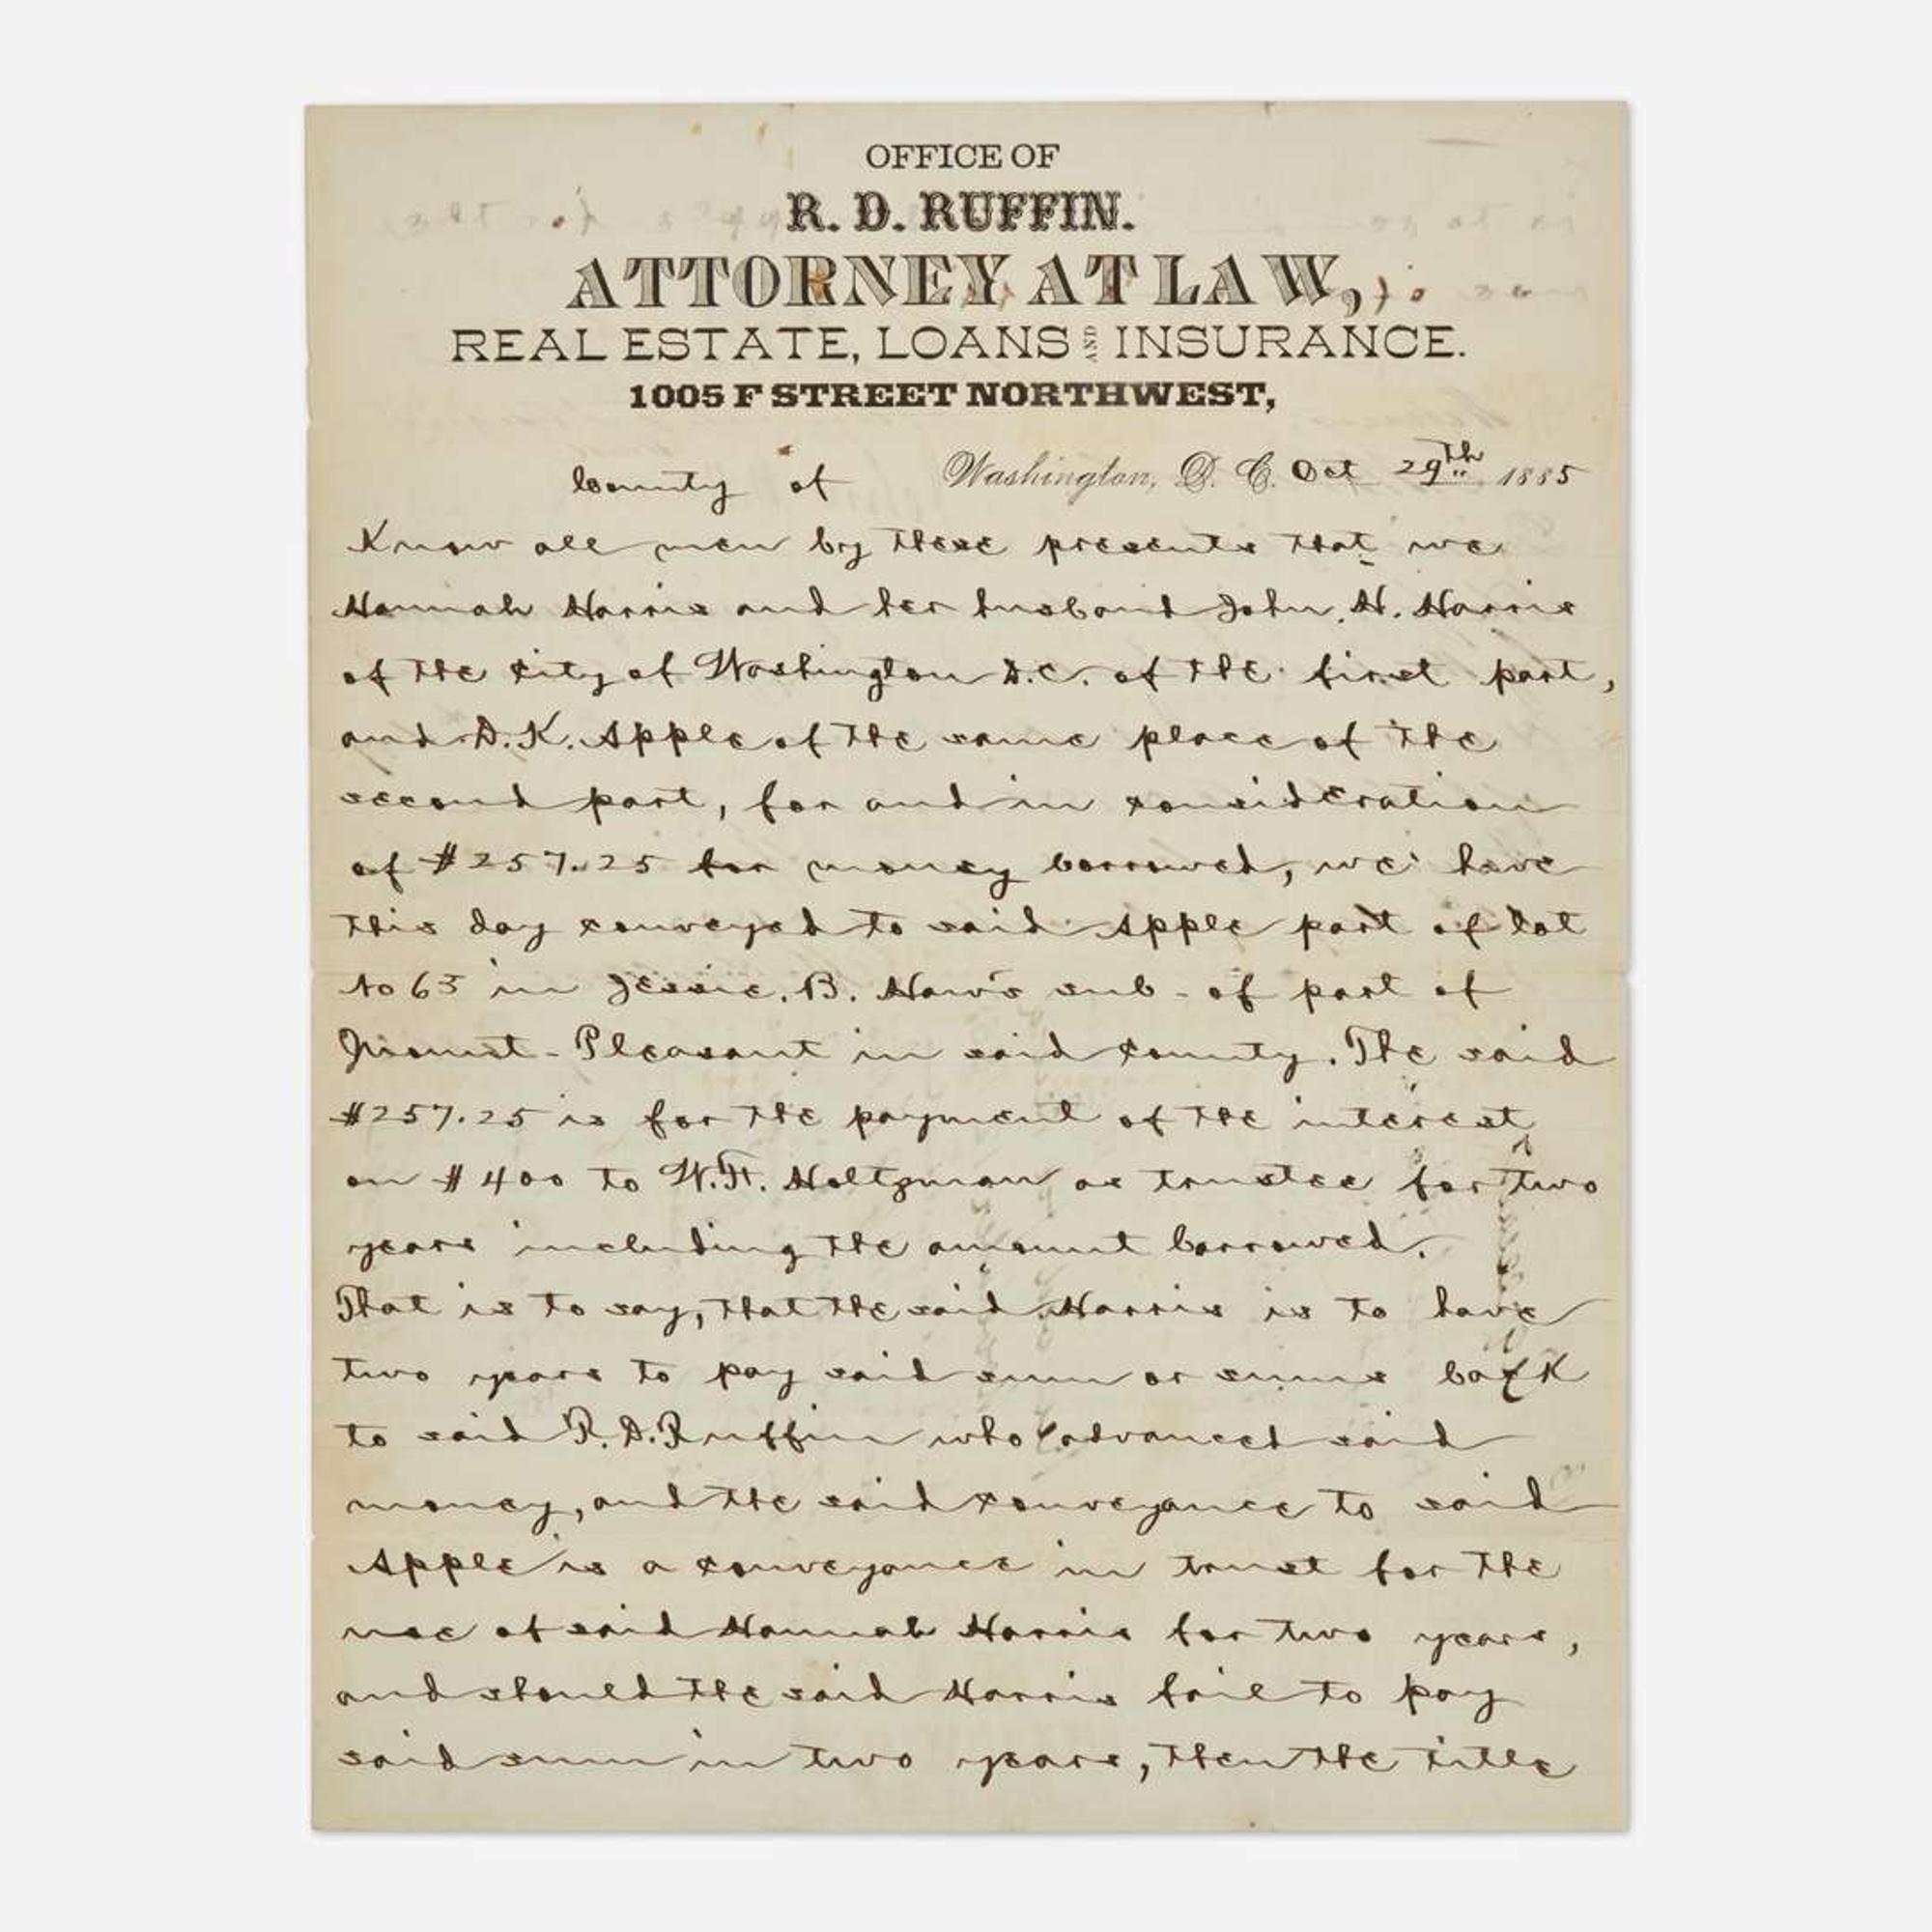 OFFICE OF
R. D. RUFFIN.
ATTORNEY AT LAW,
REAL ESTATE, LOANS AND INSURANCE.
1005 F STREET NORTHWEST,
County of Washington, D. C. Oct 29th 1885
Know all men by these presents that we
Hannah Harris and her husband John. H. Harris
of the city of Washington D.C. of the first part,
and D.K. Apple of the same place of the
second part, for and in consideration
of $257.25 for money borrowed, we have
this day conveyed to said Apple part of lot
No 63 in Jessie. B. Haw's sub - of part of
Mount - Pleasant in said county. The said
$257.25 is for the payment of the interest
on $400 to W.F. Holtzman as trustee for two
years including the amount borrowed.
That is to say, that the said Harris is to have
two years to pay said sum or sums back
to said R.D. Ruffin who advanced said
money, and the said conveyance to said
Apple is a conveyance in trust for the
use of said Hannah Harris for two years,
and should the said Harris fail to pay
said sum in two years, then the title